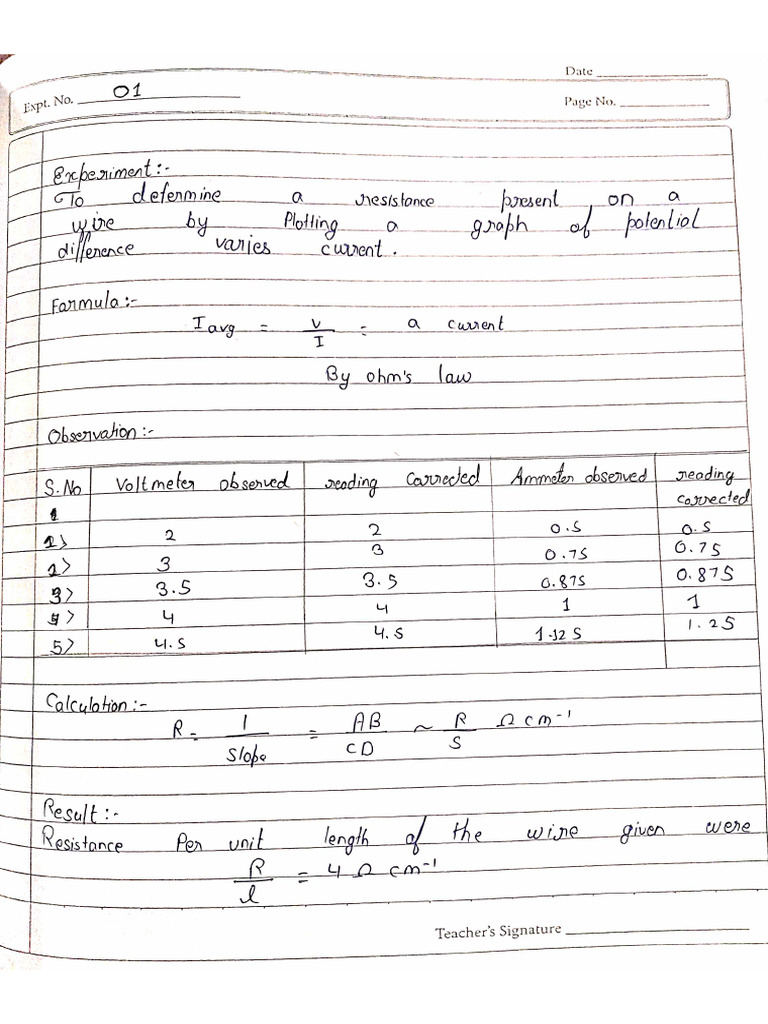 Date
Expt. No. 01
Page No.
Experiment:-
To determine a resistance present on a
wire by Plotting a graph of potential
difference varies current.
Formula:-
I avg = V/I = a current
By ohm's law
Observation:-
S.No Voltmeter observed reading corrected Ammeter observed reading corrected
1
1> 2 2 0.5 0.5
2> 3 3 0.75 0.75
3> 3.5 3.5 0.875 0.875
4> 4 4 1 1
5> 4.5 4.5 1.125 1.25
Calculation:-
R = 1/Slope = AB/CD ~ R/S Ω cm-1
Result:-
Resistance Per unit length of the wire given were
R/l = 4 Ω cm-1
Teacher's Signature